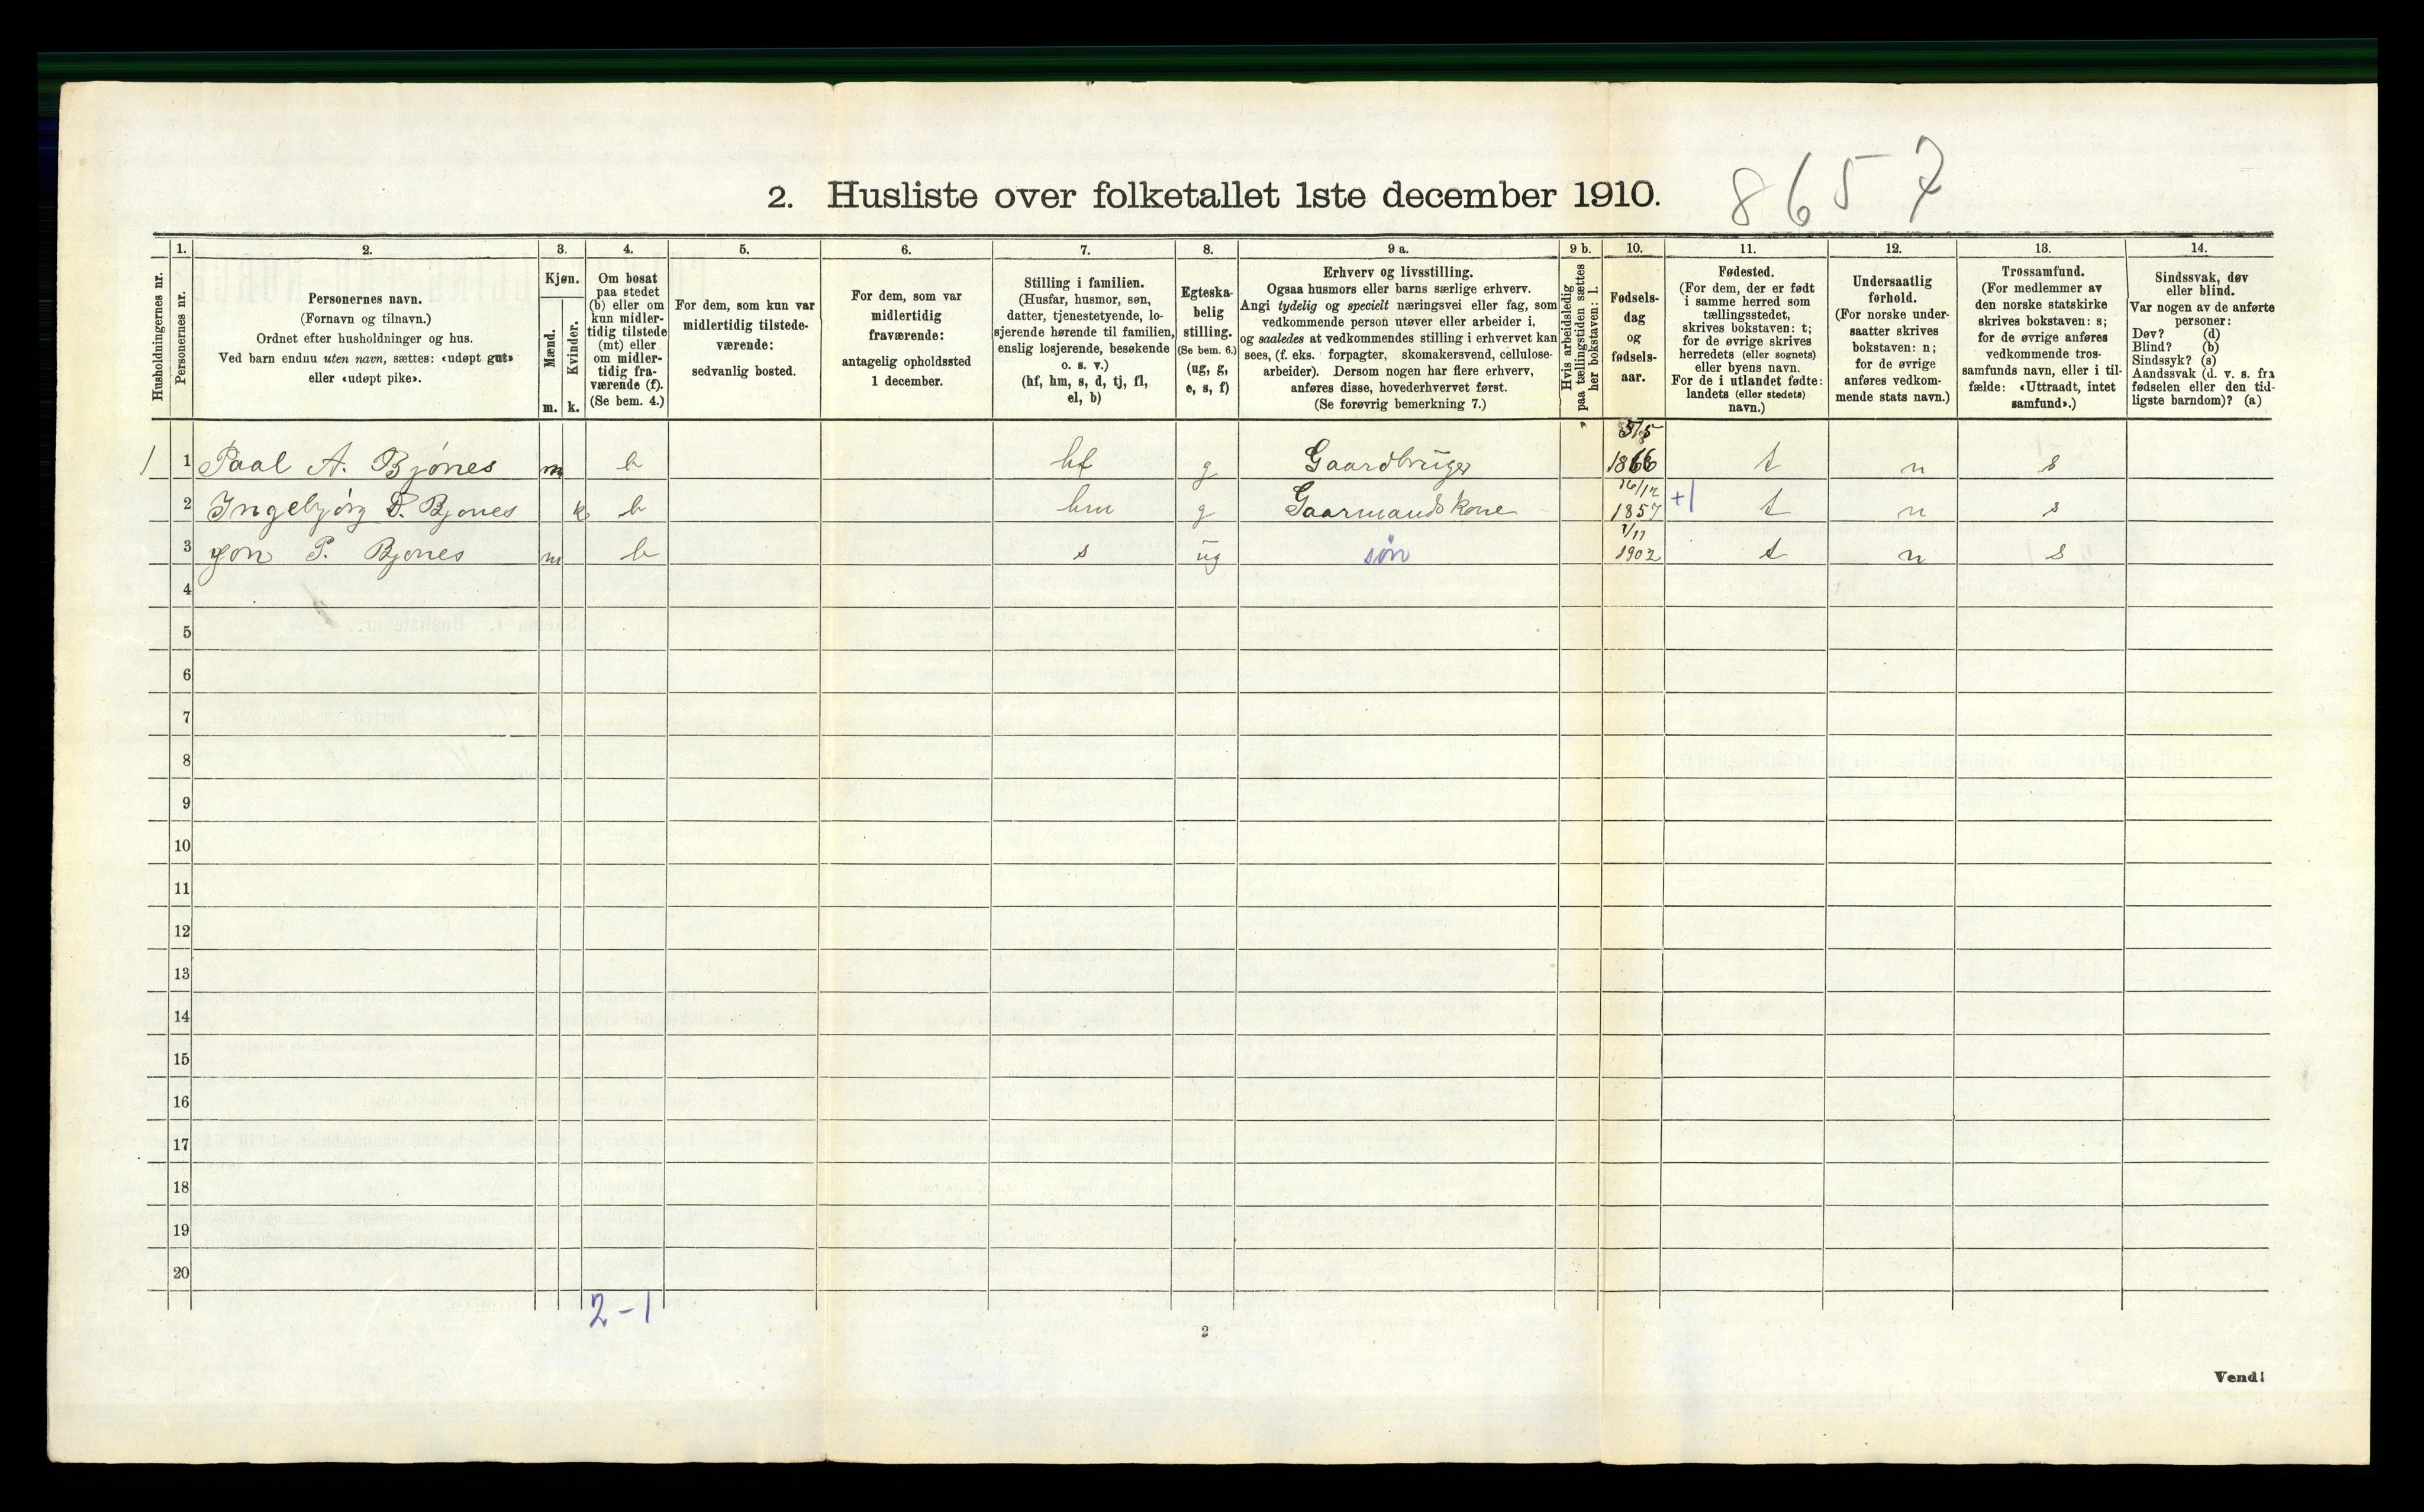 8657
2. Husliste over folketallet 1ste december 1910.
Husholdningernes nr.
1.
Personernes nr.
2.
Personernes navn.
(Fornavn og tilnavn.)
Ordnet efter husholdninger og hus.
Ved barn endnu uten navn, sættes: «udøpt gut»
eller «udøpt pike».
3.
Kjøn.
Mænd.
Kvinder.
m. k.
4.
Om bosat
paa stedet
(b) eller om
kun midler-
tidig tilstede
(mt) eller
om midler-
tidig fra-
værende (f).
(Se bem. 4.)
5.
For dem, som kun var
midlertidig tilstede-
værende:
sedvanlig bosted.
6.
For dem, som var
midlertidig
fraværende:
antagelig opholdssted
1 december.
7.
Stilling i familien.
(Husfar, husmor, søn,
datter, tjenestetyende, lo-
sjerende hørende til familien,
enslig losjerende, besøkende
o. s. v.)
(hf, hm, s, d, tj, fl,
el, b)
8.
Egteska-
belig
stilling.
(Se bem. 6.)
(ug, g,
e, s, f)
9 a.
Erhverv og livsstilling.
Ogsaa husmors eller barns særlige erhverv.
Angi tydelig og specielt næringsvei eller fag, som
vedkommende person utøver eller arbeider i,
og saaledes at vedkommendes stilling i erhvervet kan
sees, (f. eks. forpagter, skomakersvend, cellulose-
arbeider). Dersom nogen har flere erhverv,
anføres disse, hovederhvervet først.
(Se forøvrig bemerkning 7.)
9 b.
Hvis arbeidsledig
paa tællingstiden sættes
her bokstaven: l.
10.
Fødsels-
dag
og
fødsels-
aar.
11.
Fødested.
(For dem, der er født
i samme herred som
tællingsstedet,
skrives bokstaven: t;
for de øvrige skrives
herredets (eller sognets)
eller byens navn.
For de i utlandet fødte:
landets (eller stedets)
navn.)
12.
Undersaatlig
forhold.
(For norske under-
saatter skrives
bokstaven: n;
for de øvrige
anføres vedkom-
mende stats navn.)
13.
Trossamfund.
(For medlemmer av
den norske statskirke
skrives bokstaven: s;
for de øvrige anføres
vedkommende tros-
samfunds navn, eller i til-
fælde: «Uttraadt, intet
samfund».)
14.
Sindssvak, døv
eller blind.
Var nogen av de anførte
personer:
Døv? (d)
Blind? (b)
Sindssyk? (s)
Aandssvak (d. v. s. fra
fødselen eller den tid-
ligste barndom)? (a)
1 1 Paal A. Bjónes m b hf g Gaardbruger 1866 t n s
2 Ingebjórg Bjones k b hm g Gaarmands kone 16/12 1857 +1 t n s
3 Jon P. Bjones m b s ug søn 1902 t n s
4
5
6
7
8
9
10
11
12
13
14
15
16
17
18
19
20
2-1
2
Vend!